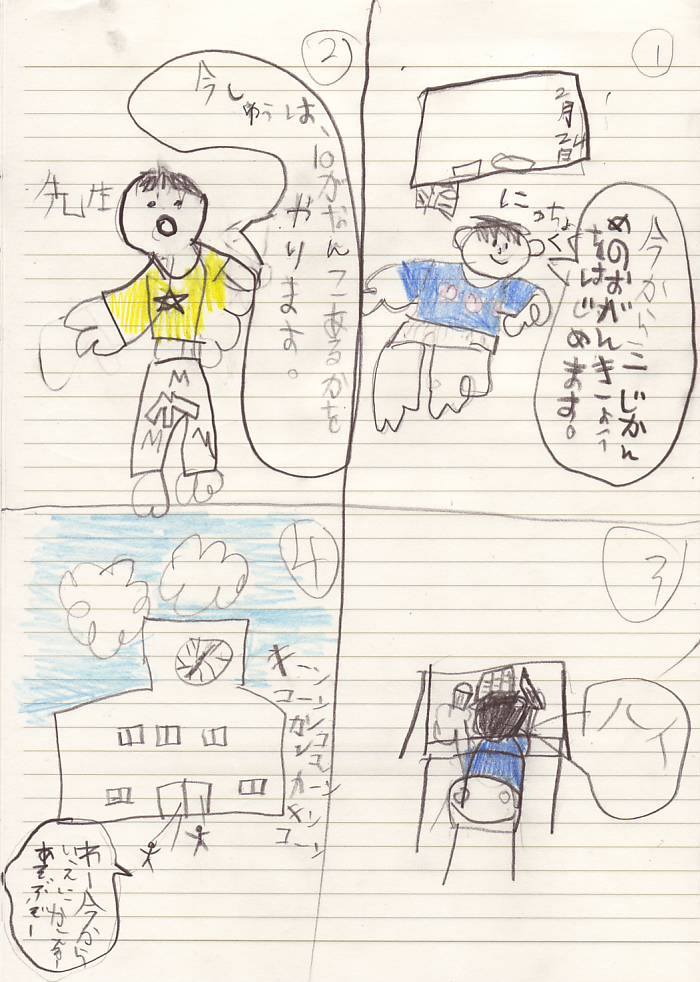 1
2月24日
にっちょく
今から二じかん
めのおがんきょう
をはじめます。
2
今しゅうは、
10がなんこあるかを
やります。
先生
3
ハイ
4
キーン
コーン
カンコ
ンコー
カーン
キン
コーン
わー今から
いえにかえって
あそぶぞー